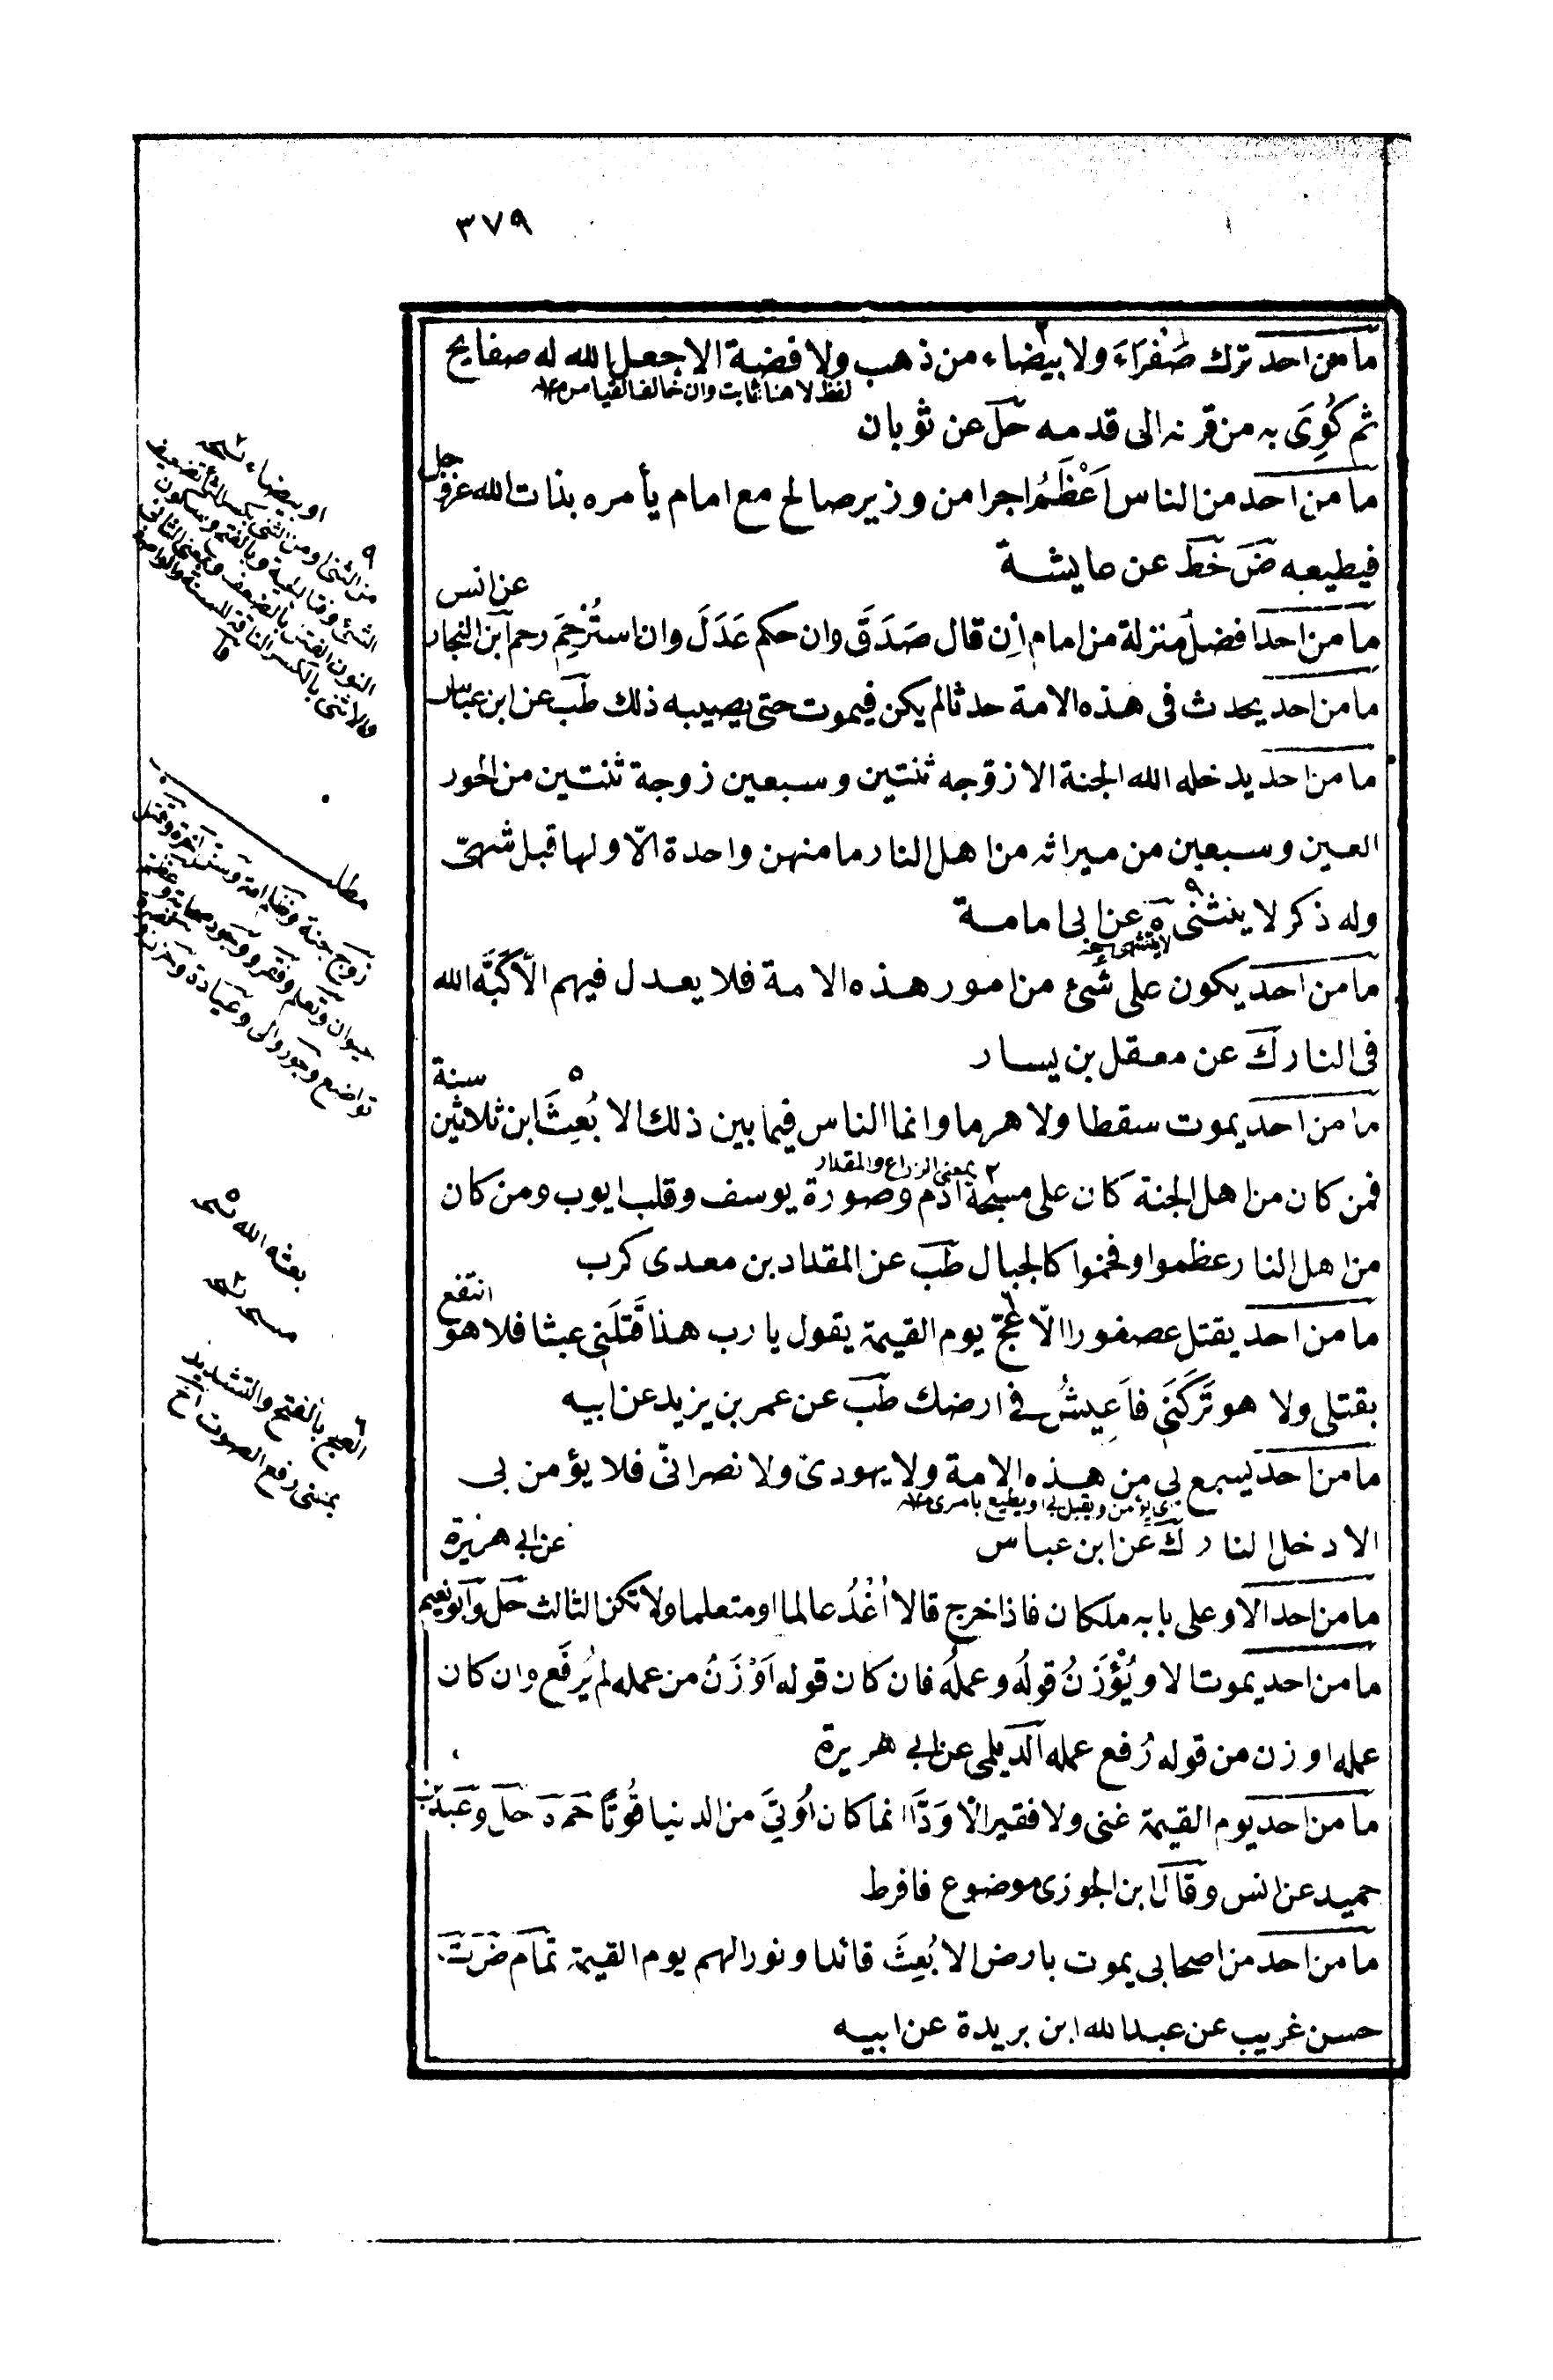 ٣٧٩
ما من احد ترك صَفْرَاءَ ولا بيضاء من ذهب ولا فضة الا جعل الله له صفايح
لفظ لا هنا ثابت وان خالف القياس منه
ثم كُوِىَ به من قرنه الى قدمه حل عن ثوبان
ما من احد من الناس اَعْظَمُ اجرا من وزير صالح مع امام يأمره بذات الله عز وجل
فيطيعه ض خط عن عايشة
ما من احد افضل منزلة من امام اِن قال صَدَقَ وان حكم عَدَلَ وان استُرْحِمَ رحم ابن النجار عن انس
ما من احد يحدث فى هذه الامة حدثا لم يكن فيموت حتى يصيبه ذلك طب عن ابن عباس
ما من احد يدخله الله الجنة الا زوّجه ثنتين وسبعين زوجة ثنتين من الحور
العين وسبعين من ميراثه من اهل النار ما منهن واحدة الّا ولها قبل شهىّ
وله ذكر لا ينثنى ه عن ابى امامة
ما من احد يكون على شئ من امور هذه الامة فلا يعدل فيهم الّا كَبَّه الله
فى النار ك عن معقل بن يسار
ما من احد يموت سقطا ولا هرما وانما الناس فيما بين ذلك الا بُعِثَ ابن ثلاثين سنة
بمعنى الزراع والمقدار
فمن كان من اهل الجنة كان على مسحة ادم وصورة يوسف وقلب ايوب ومن كان
من اهل النار عظموا وفخموا كالجبال طب عن المقداد بن معدى كرب
ما من احد يقتل عصفورا الّا عجّ يوم القيمة يقول يا رب هذا قَتَلَنِى عبثا فلا هو انتفع
بقتلى ولا هو تَرَكَنِى فاَعِيشُ فى ارضك طب عن عمر بن يزيد عن ابيه
ما من احد يسمع بى من هذه الامة ولا يهودىّ ولا نصرانىّ فلا يؤمن بى
الا دخل النار ك عن ابن عباس
ما من احد الا وعلى بابه ملكان فاذا خرج قالا اُغْدُ عالما او متعلما ولا تكن الثالث حل وابو نعيم عن ابى هريرة
ما من احد يموت الا ويُؤْزَنُ قولُه وعملُه فان كان قوله اَوْزَنُ من عمله لم يُرفَع وان كان
عمله اوزن من قوله رُفع عمله الديلمى عن ابى هريرة
ما من احد يوم القيمة غنى ولا فقير الّا وَدَّ انما كان اُوتِىَ من الدنيا قُوتًا حم ه حل وعبد بن
حميد عن انس وقال ابن الجوزى موضوع فافرط
ما من احد من اصحابى يموت بارض الا بُعِثَ قائدا ونورا لهم يوم القيمة تمام ض ت
حسن غريب عن عبد الله ابن بريدة عن ابيه
او بيضاء
مطلب
بعثه الله
العج بالفتح والتشديد
بمعنى رفع الصوت